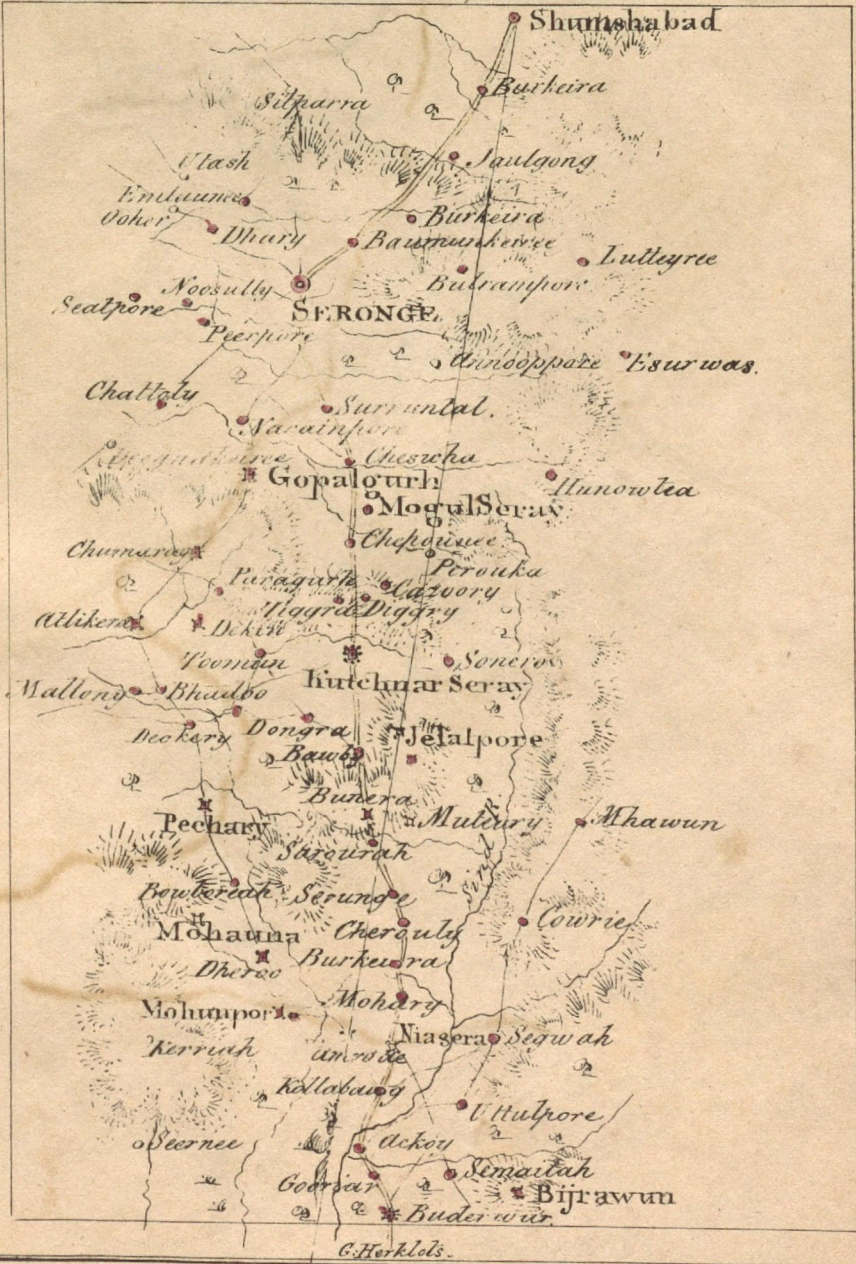 Shumshabad
Burkeira
Silparra
Jaulgong
Utash
Emlaunee
Ooher
Dhary
Burkeira
Baumunkeiree
Lutteyree
Noosully
Bulrampore
Seatpore
SERONGE
Peerpore
Unnooppore
Esurwas.
Chattoly
Surruntal.
Narainpore
Cheswha
Gopalgurh
Hunowtea
Mogul Seray
Chepounee
Chumaray
Pirouka
Puragurh
Cazoory
Tiggra Diggry
Atlikera
Dekin
Toomun
Soneroo
Kutchnar Seray
Mallong
Bhadoo
Deokery
Dongra
Jefalpore
Bawby
Bunera
Pechary
Muttury
Mhawun
Sind R
Sarourah
Bowtoriah
Serunge
Cowrie
Mohauna
Cherouly
Dheroo
Burkewra
Mohary
Mohunpore
Niagera
Segwah
Kerriah
umrode
Kollabaug
Uttulpore
Seernee
Ackoy
Semaitah
Goorjar
Bijrawun
Buderwur.
G. Herklots.